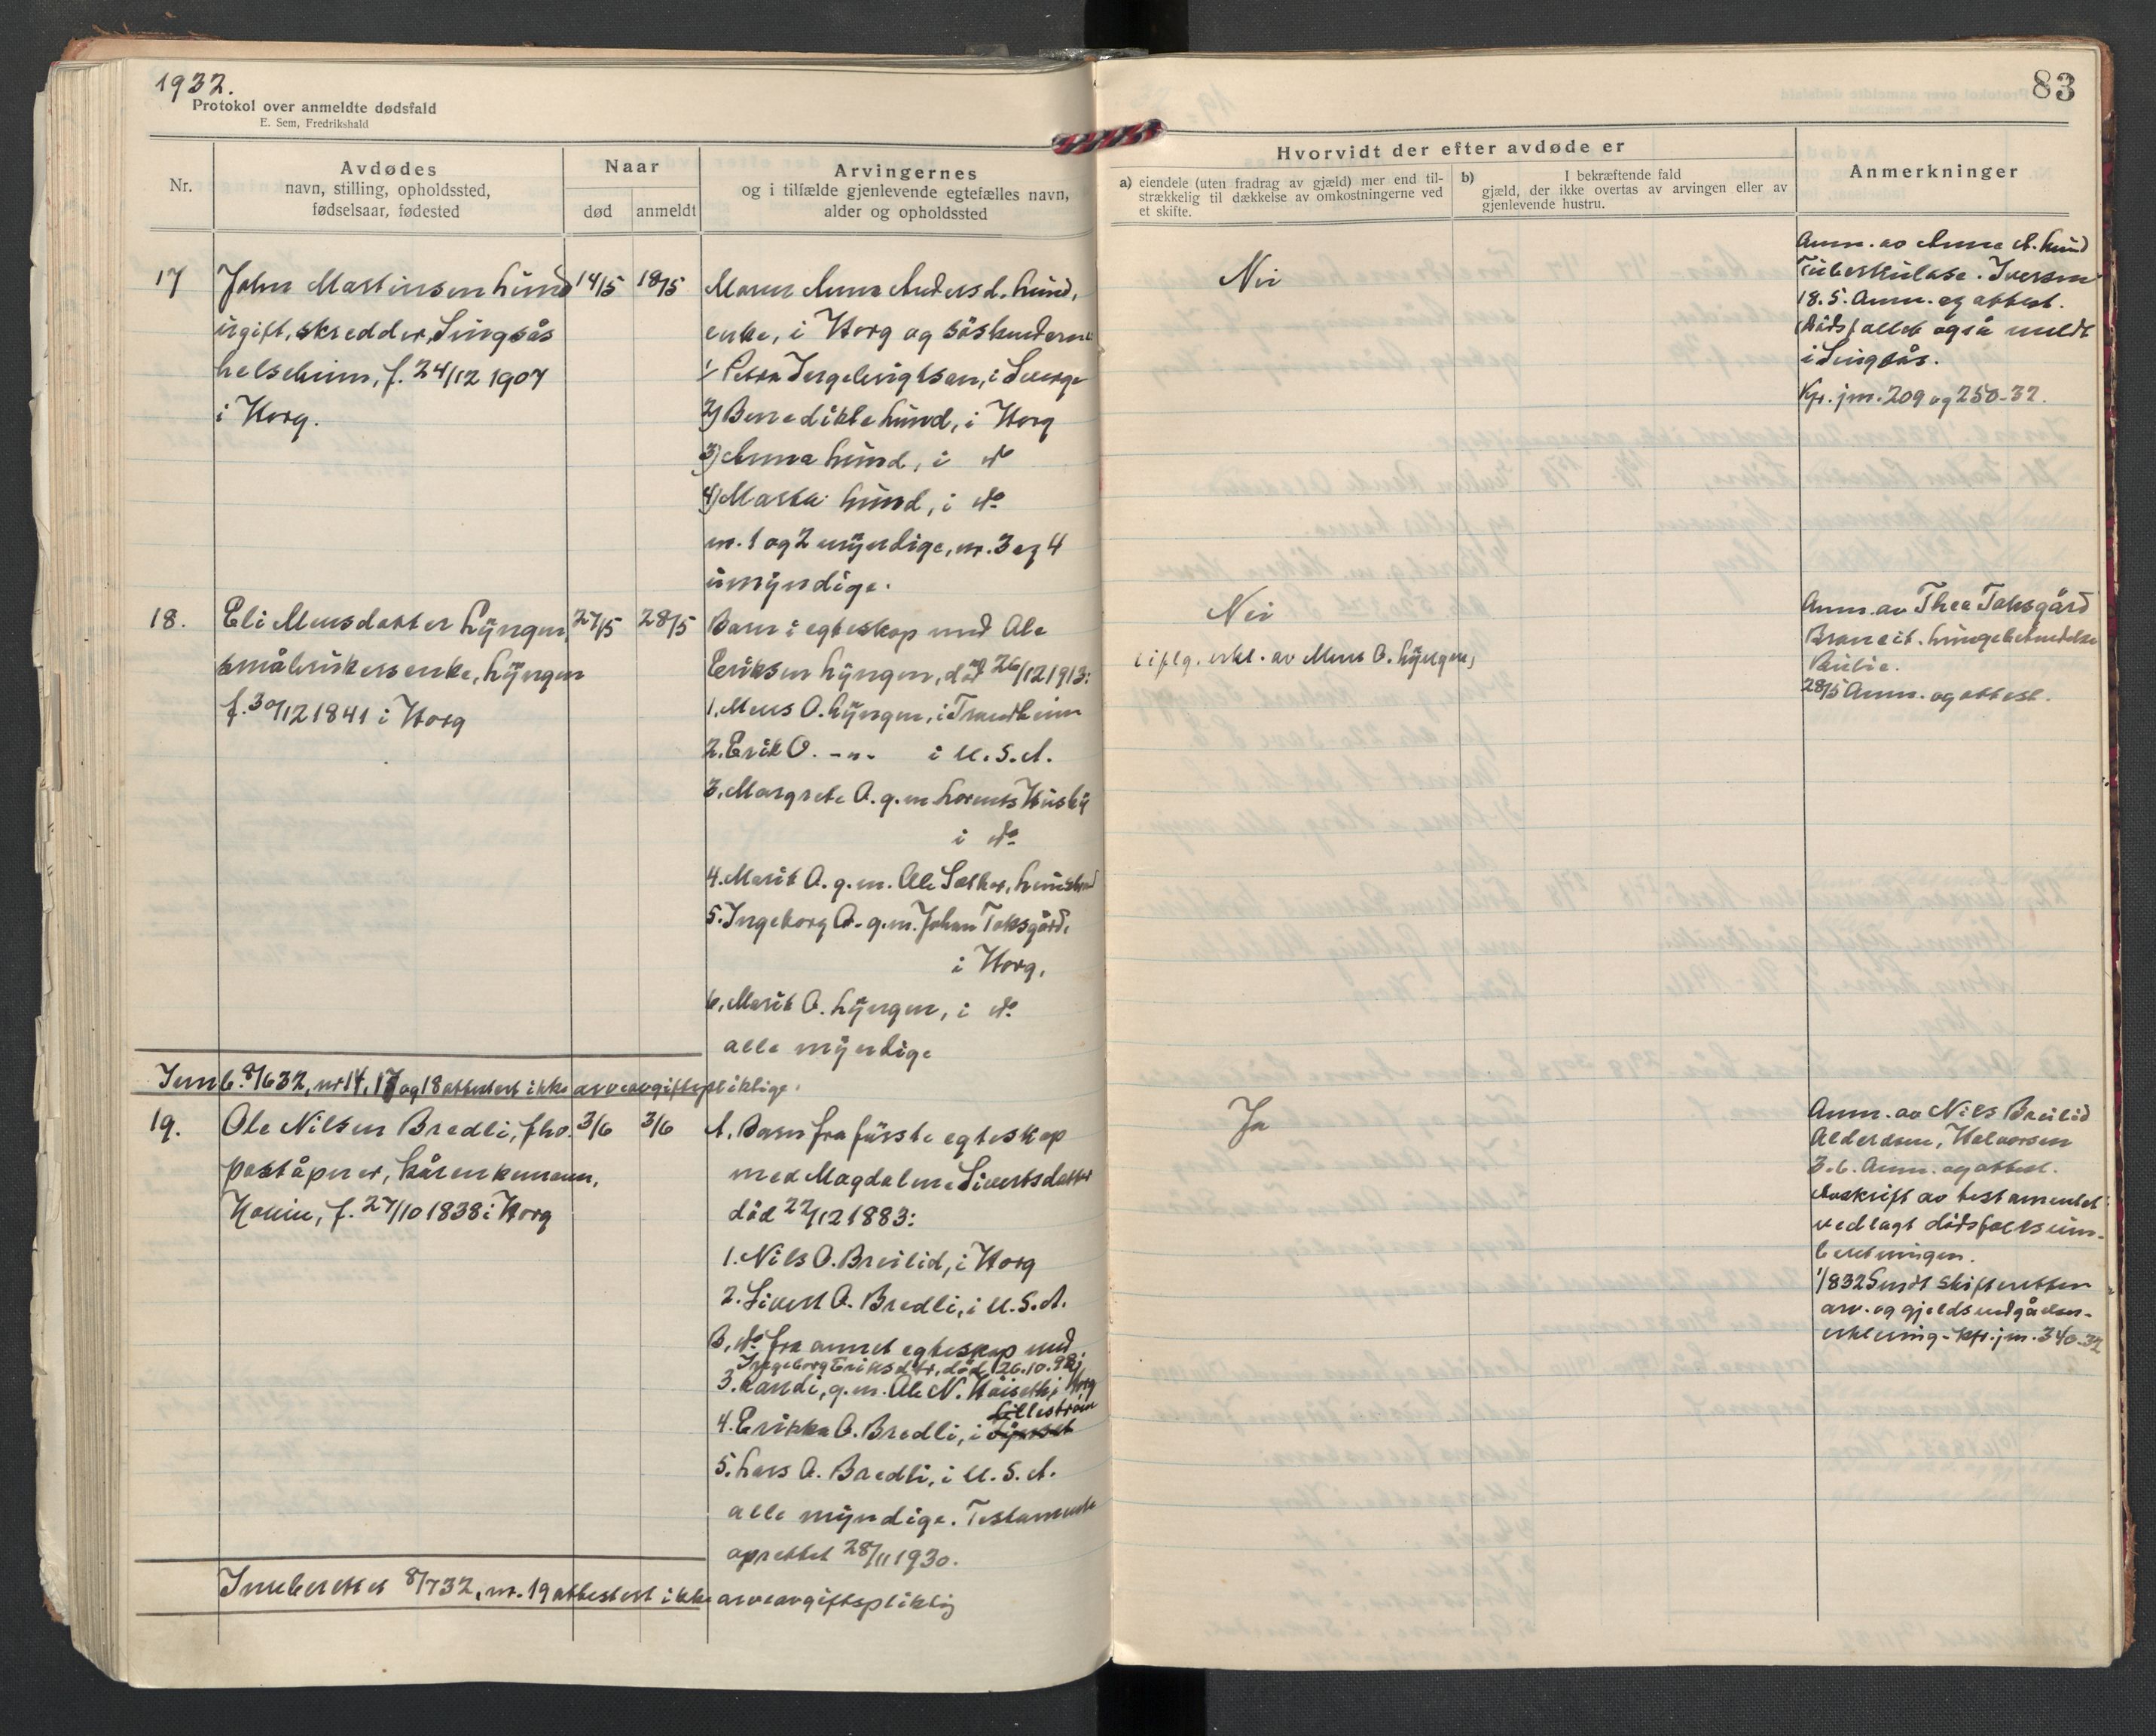 1932.
Protokol over anmeldte dødsfald
E. Sem, Fredrikshald
Nr.
Avdødes
navn, stilling, opholdssted,
fødselsaar, fødested
Naar
død
anmeldt
Arvingernes
og i tilfælde gjenlevende egtefælles navn,
alder og opholdssted
17
John Martinsen Lund
ugift, skredder, Singsås
helseheim, f. 24/12 1907
i Horg.
14/5
18/5
Moren Anna Andersd. Lund,
enke, i Horg og söskenderne
1/ Petra Ingebrigtsen, i Sverge
2) Benedikte Lund, i Horg
3) Anna Lund, i do
4) Marta Lund, i do
nr. 1 og 2 myndige, nr. 3 og 4
umyndige.
18.
Eli Monsdatter Lyngen
småbrukersenke, Lyngen
f. 30/12 1841 i Horg
27/5
28/5
Barn i egteskap med Ole
Eriksen Lyngen, död 26/12 1913:
1. Mons O. Lyngen, i Trondheim
2. Erik O. -"- i U.S.A.
3. Margrete O. g.m. Lorents Husby
i do
4. Marit O. g.m. Ole Sæther,
5. Ingeborg O. g.m. Johan Toksgård,
i Horg.
6. Marit O. Lyngen, i do
alle myndige
Innb. 8/6 32, nr 14, 17 og 18 attestert ikke arveavgiftspliktige.
19.
Ole Nilsen Bredli, fhv.
poståpner, kårenkemann,
Hovin, f. 27/10 1838 i Horg
3/6
3/6
A. Barn fra fürste egteskap
med Magdalene Sivertsdatter
död 22/12 1883:
1. Nils O. Breilid, i Horg
2. Sivert O. Bredli, i U.S.A.
B. do fra annet egteskap med
Ingeborg Eriksdtr, död 26.10.92
3. Randi, g.m. Ole N. Höiseth, i Horg
Lilleström
4. Erikka O. Bredli, i
5. Lars O. Bredli, i U.S.A.
alle myndige. Testamente
oprettet 28/11 1930.
Innberettet 8/7 32, nr. 19 attestert ikke arveavgiftspliktig
83
Hvorvidt der efter avdøde er
a) eiendele (uten fradrag av gjæld) mer end til-
strækkelig til dækkelse av omkostningerne ved
et skifte.
b) I bekræftende fald
gjæld, der ikke overtas av arvingen eller av
gjenlevende hustru.
Anmerkninger
Nei
Anm. av Anna A. Lund
Tuberkulose. Iversen
18.5. Anm. og attest.
Dödsfallet også meldt
i Singsås.
Kfr. jnr. 209 og 250-32.
Nei
(iflg. erkl. av Mons O. Lyngen)
Anm. av Thea Toksgård
Broncit. Lungebetendelse
28/5 Anm. og attest.
Ja
Anm. av Nils Breilid
Alderdom, Halvorsen
3.6. Anm. og attest.
Avskrift av testamentet
vedlagt dödsfallsinn-
beretningen.
1/8 32 Sendt skifteretten
arv- og gjeldsvedgåelses-
erklæring - kfr. jnr. 340-32